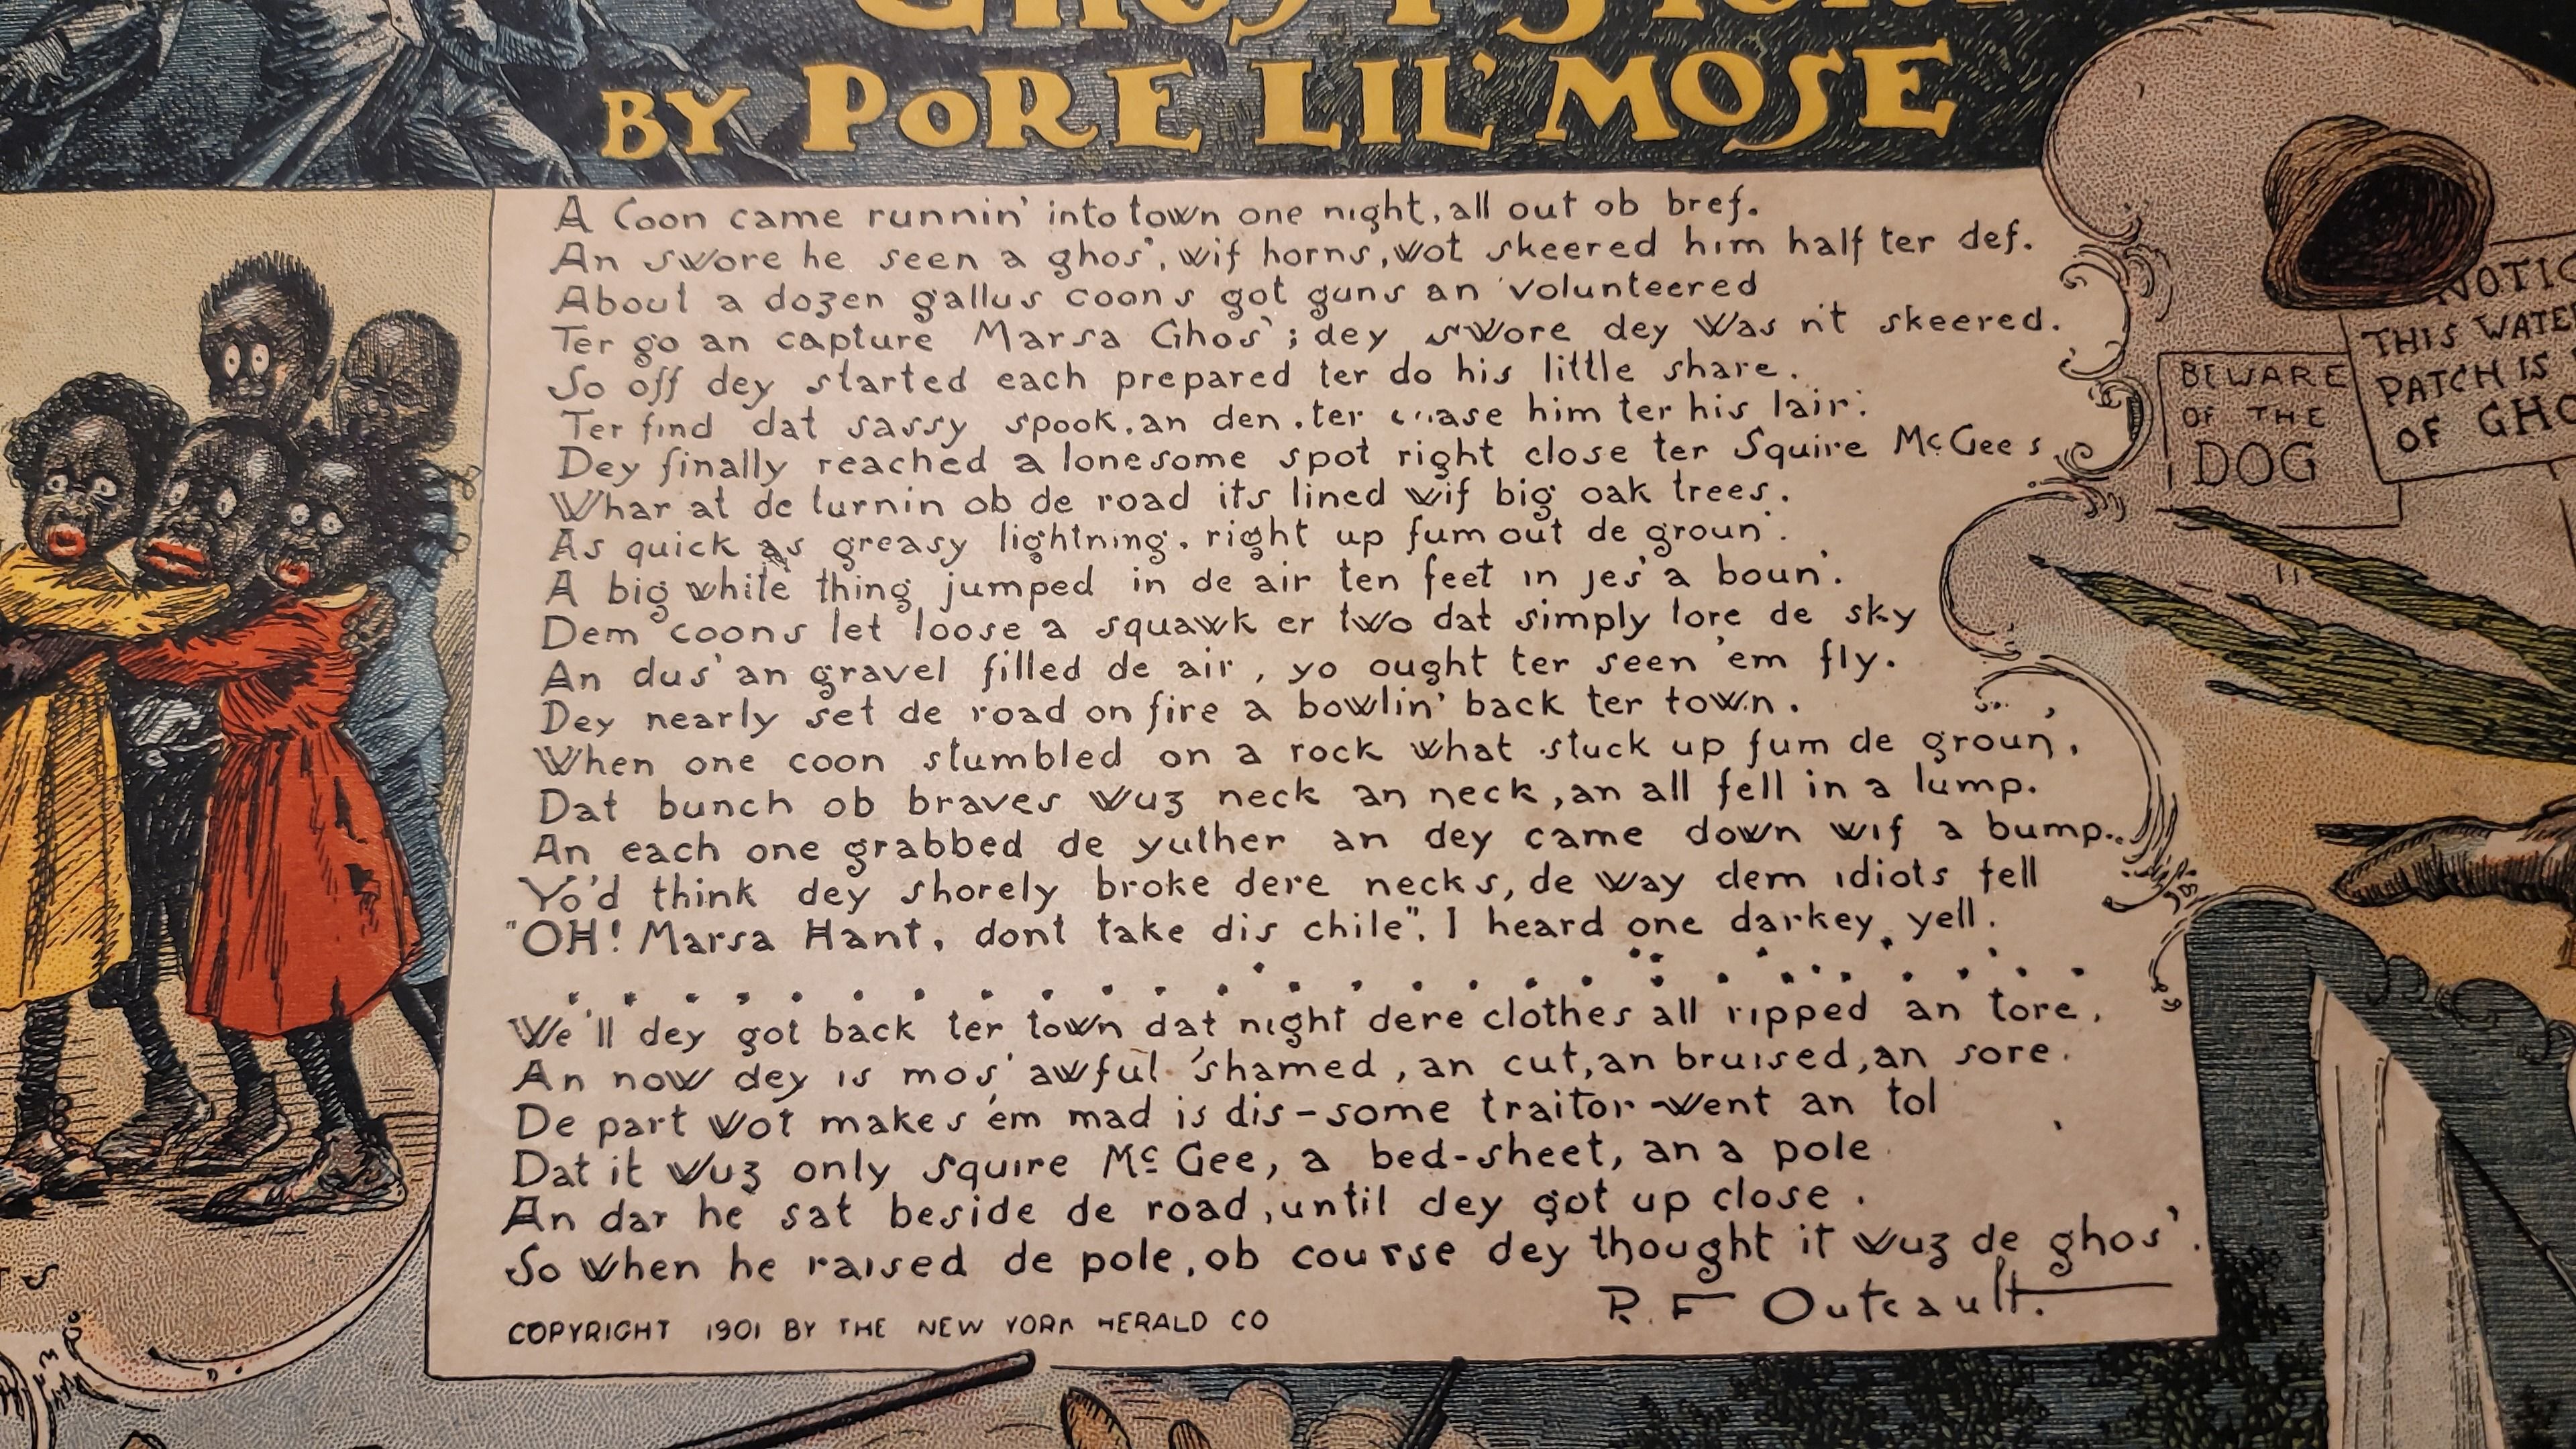 BY PORE LIL' MOSE
A Coon came runnin' into town one night, all out ob bref.
An swore he seen a ghos', wif horns, wot skeered him half ter def.
About a dozen gallus coons got guns an volunteered
Ter go an capture Marsa Ghos'; dey swore dey was n't skeered.
So off dey started each prepared ter do his little share.
Ter find dat sassy spook, an den, ter chase him ter his lair.
Dey finally reached a lonesome spot right close ter Squire McGees,
Whar at de turnin ob de road its lined wif big oak trees.
As quick as greasy lightning, right up fum out de groun'.
A big white thing jumped in de air ten feet in jes' a boun'.
Dem coons let loose a squawk er two dat simply tore de sky
An dus' an gravel filled de air, yo ought ter seen 'em fly.
Dey nearly set de road on fire a bowlin' back ter town.
When one coon stumbled on a rock what stuck up fum de groun',
Dat bunch ob braves wuz neck an neck, an all fell in a lump.
An each one grabbed de yuther an dey came down wif a bump.
Yo'd think dey shorely broke dere necks, de way dem idiots fell
"OH! Marsa Hant, dont take dis chile", I heard one darkey yell.
We'll dey got back ter town dat night dere clothes all ripped an tore,
An now dey is mos' awful 'shamed, an cut, an bruised, an sore.
De part wot makes 'em mad is dis-some traitor went an tol
Dat it wuz only squire McGee, a bed-sheet, an a pole
An dar he sat beside de road, until dey got up close.
So when he raised de pole, ob course dey thought it wuz de ghos'.
R. F Outcault.
COPYRIGHT 1901 BY THE NEW YORK HERALD CO
BEWARE
OF THE
DOG
THIS
PATCH IS
OF